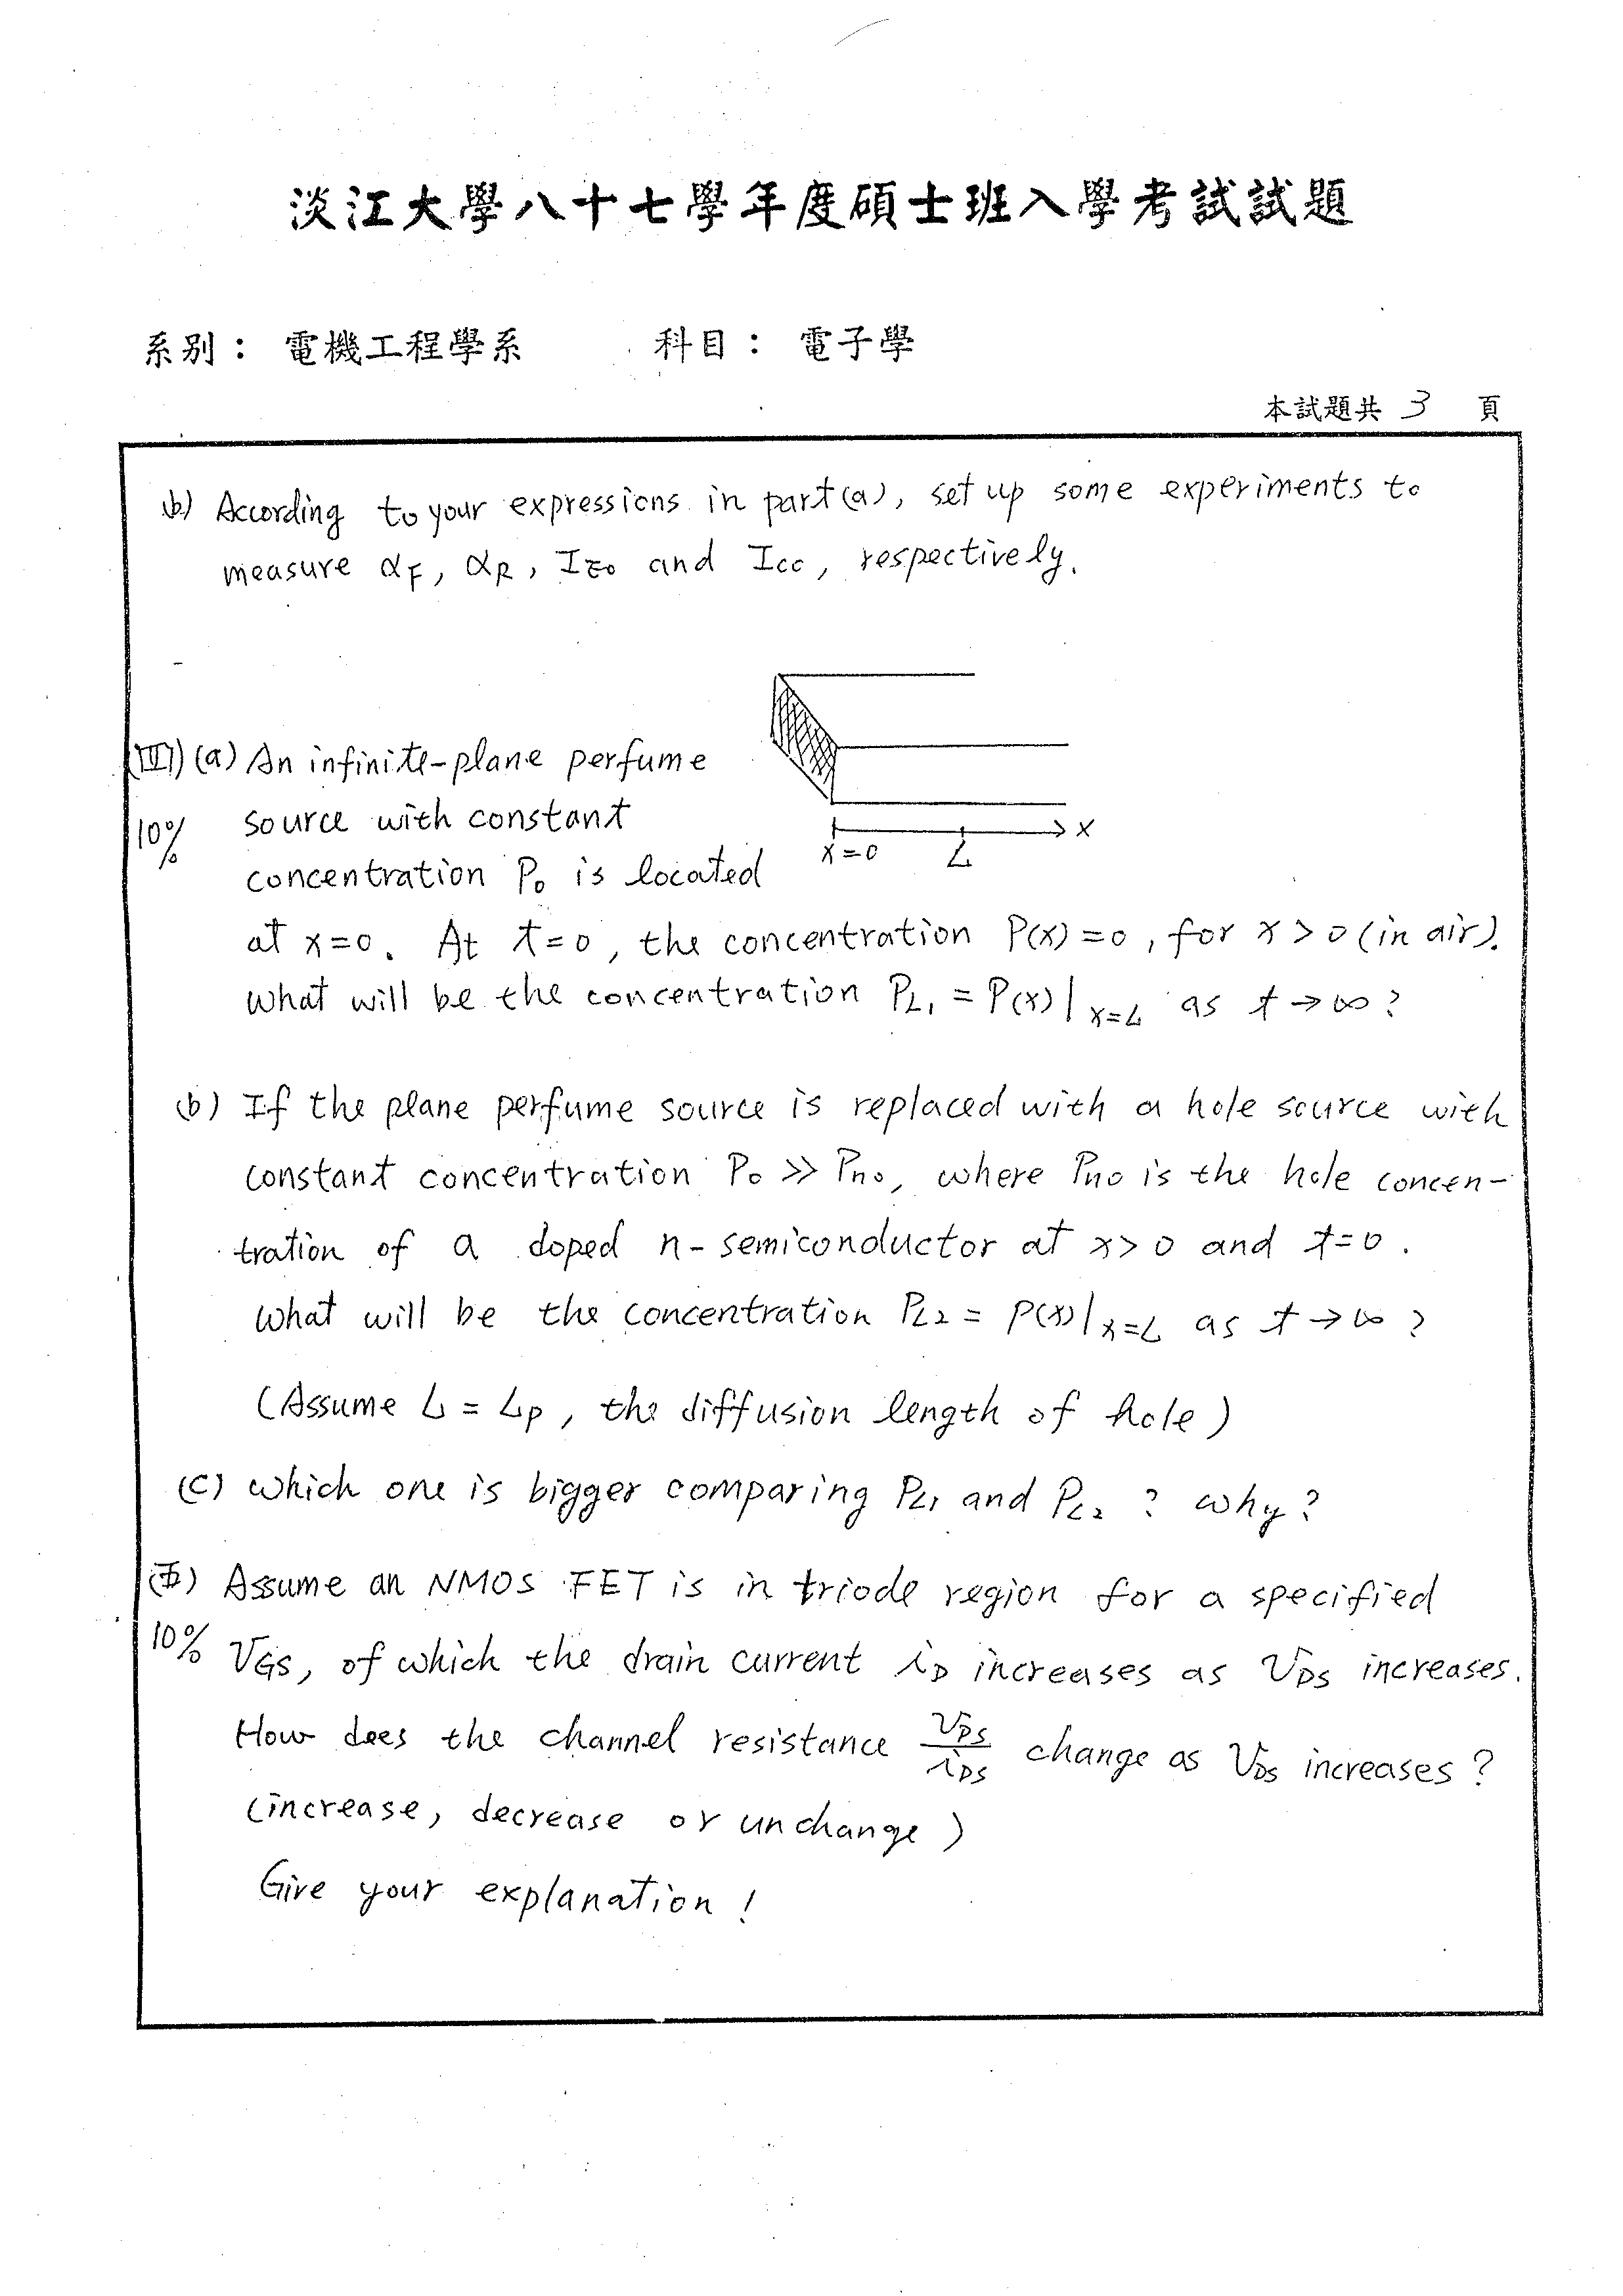 淡江大學八十七學年度碩士班入學考試試題
系別： 電機工程學系 科目： 電子學
本試題共 3 頁
(b) According to your expressions in part(a), set up some experiments to
measure αF, αR, IEo and Icc, respectively.
(III) (a) An infinite-plane perfume
10% source with constant
concentration Po is located
x=0 L x
at x=0. At t=0, the concentration P(x)=0, for x>0 (in air).
What will be the concentration PL1 = P(x)|x=L as t→∞?
(b) If the plane perfume source is replaced with a hole source with
constant concentration Po >> Pno, where Pno is the hole concen-
tration of a doped n-semiconductor at x>0 and t=0.
What will be the concentration PL2 = P(x)|x=L as t→∞?
(Assume L = Lp, the diffusion length of hole)
(c) Which one is bigger comparing PL1 and PL2 ? Why?
Assume an NMOS FET is in triode region for a specified
10% VGS, of which the drain current iD increases as VDS increases.
How does the channel resistance VDS/iDS change as VDS increases?
(increase, decrease or unchange)
Give your explanation!